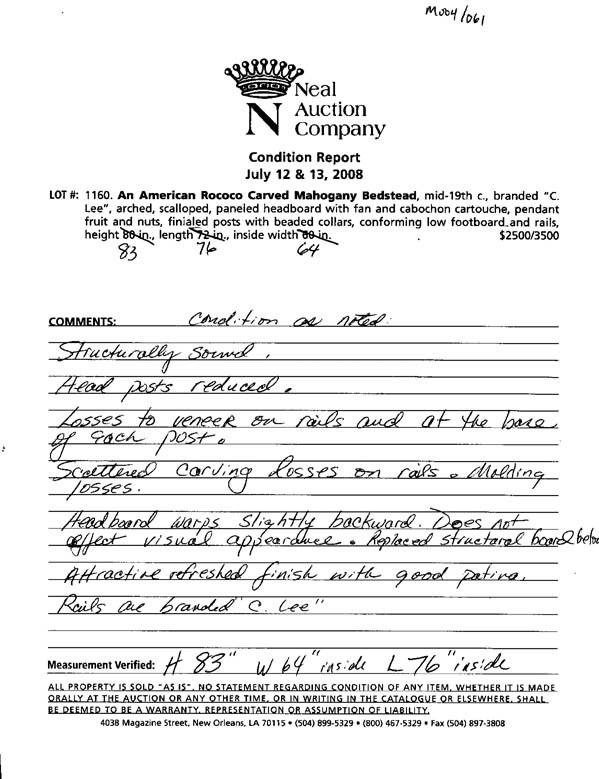 M004/061
Neal
N Auction
Company
Condition Report
July 12 & 13, 2008
LOT #: 1160. An American Rococo Carved Mahogany Bedstead, mid-19th c., branded "C.
Lee", arched, scalloped, paneled headboard with fan and cabochon cartouche, pendant
fruit and nuts, finialed posts with beaded collars, conforming low footboard and rails,
height 80 in., length 72 in., inside width 60 in. $2500/3500
83 76 64
COMMENTS: Condition as noted:
Structurally sound.
Head posts reduced.
Losses to veneer on rails and at the base
of each post.
Scattered carving losses on rails. Molding
losses.
Headboard warps slightly backward. Does not
affect visual appearance. Replaced structural board below
Attractive refreshed finish with good patina.
Rails are branded "C. Lee"
Measurement Verified: H 83" W 64" inside L 76" inside
ALL PROPERTY IS SOLD "AS IS". NO STATEMENT REGARDING CONDITION OF ANY ITEM, WHETHER IT IS MADE
ORALLY AT THE AUCTION OR ANY OTHER TIME, OR IN WRITING IN THE CATALOGUE OR ELSEWHERE, SHALL
BE DEEMED TO BE A WARRANTY, REPRESENTATION OR ASSUMPTION OF LIABILITY.
4038 Magazine Street, New Orleans, LA 70115 • (504) 899-5329 • (800) 467-5329 • Fax (504) 897-3808